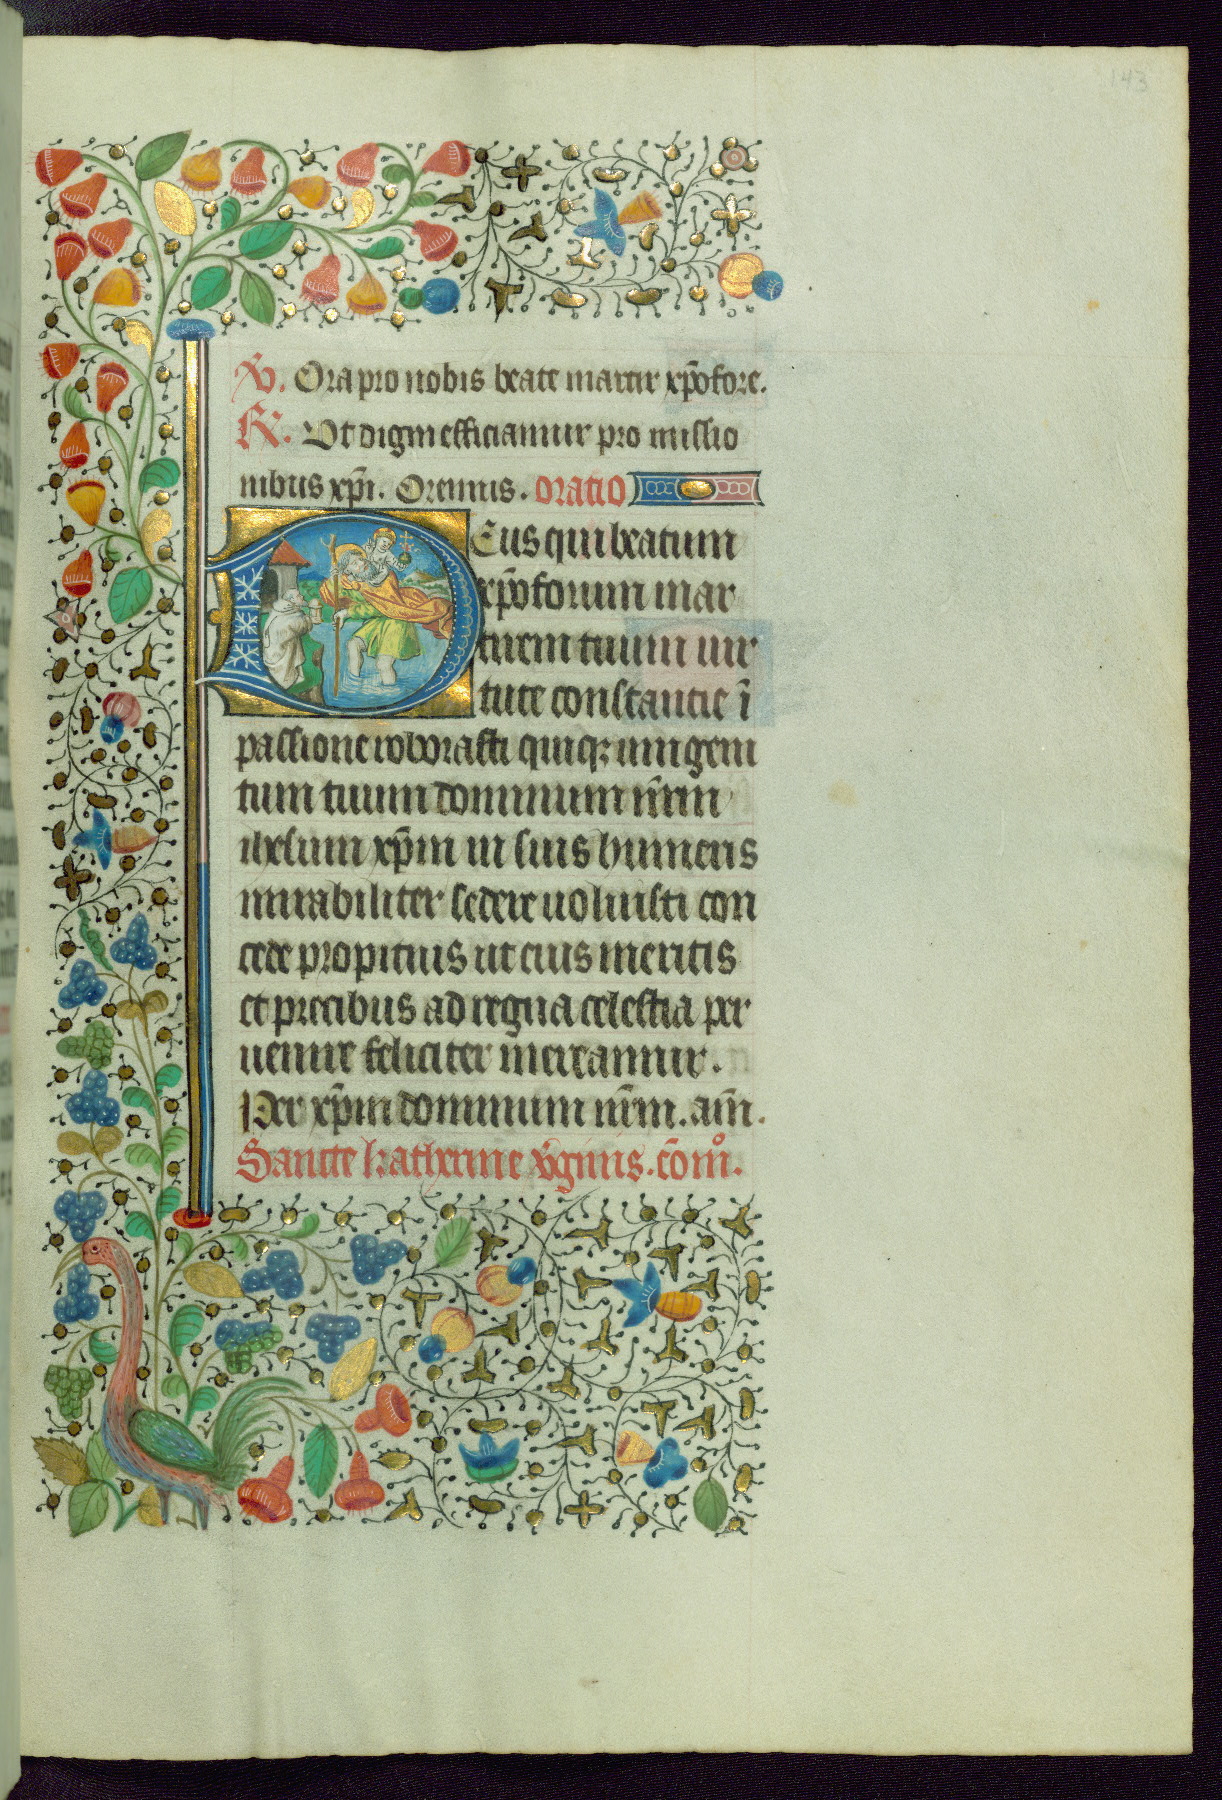 143
V. Ora pro nobis beate martir xp̄ofore.
R. Ut digni efficiamur pro missio
nibus xp̄i. Oremus. oratio
Deus qui beatum
xp̄oforum mar
tirem tuum uir
tute constantie ī
passione roborasti quiqz unigeni
tum tuum dominum nr̄m
ihesum xp̄m in suis humeris
mirabiliter sedere uoluisti con
cede propitius ut eius meritis
et precibus ad regna celestia per
uenire feliciter mereamur.
Per xp̄m dominum nr̄m. am̄.
Sancte katherine v̄ginis. cōmo.